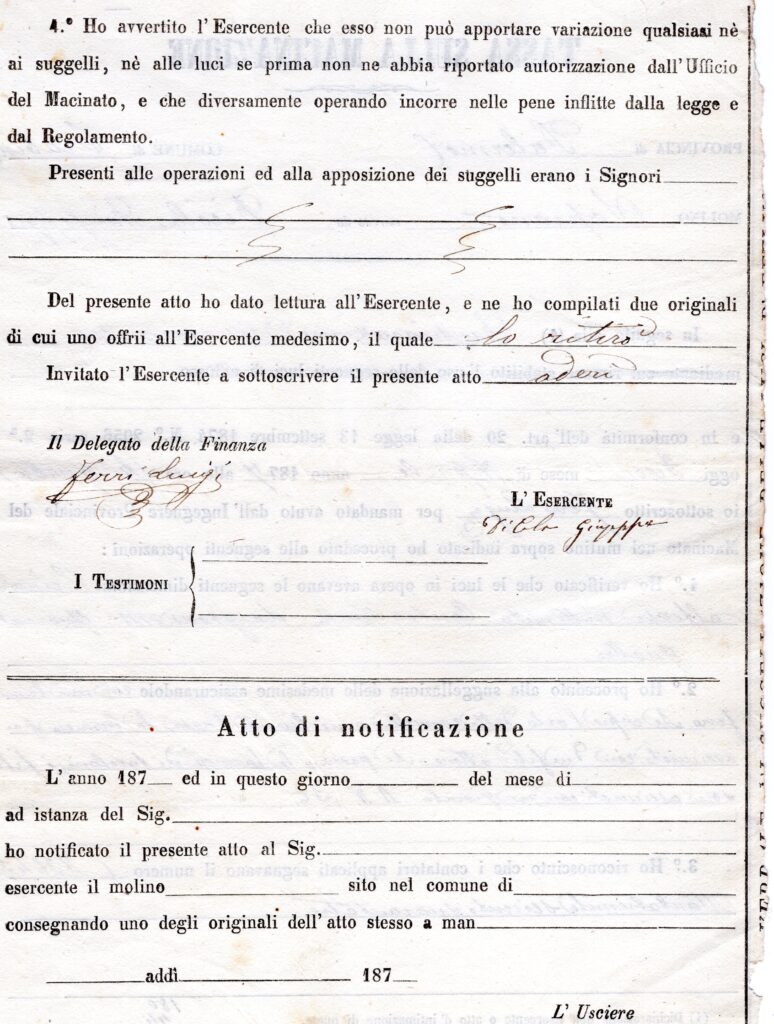 4.° Ho avvertito l'Esercente che esso non può apportare variazione qualsiasi nè
ai suggelli, nè alle luci se prima non ne abbia riportato autorizzazione dall'Ufficio
del Macinato, e che diversamente operando incorre nelle pene inflitte dalla legge e
dal Regolamento.
Presenti alle operazioni ed alla apposizione dei suggelli erano i Signori
Del presente atto ho dato lettura all'Esercente, e ne ho compilati due originali
di cui uno offrii all'Esercente medesimo, il quale lo ritirò
Invitato l'Esercente a sottoscrivere il presente atto aderì
Il Delegato della Finanza
Ferri Luigi
L'Esercente
I Testimoni
Atto di notificazione
L'anno 187 ed in questo giorno del mese di
ad istanza del Sig.
ho notificato il presente atto al Sig.
esercente il molino sito nel comune di
consegnando uno degli originali dell'atto stesso a man
addì 187
L'Usciere